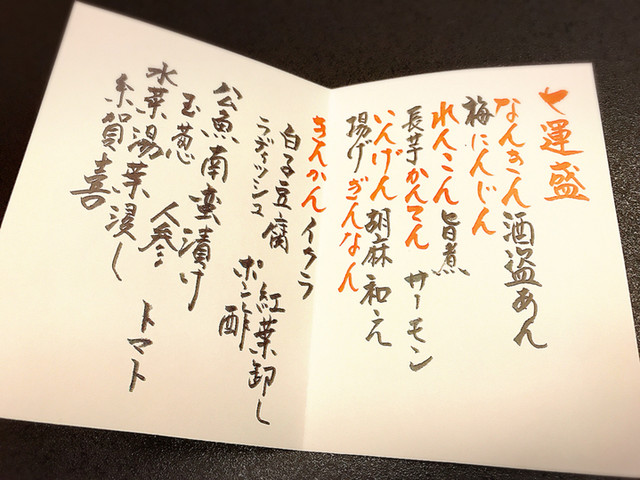 七運盛
なんきん酒盗あん
梅にんじん
れんこん旨煮
長芋かんてん サーモン
いんげん胡麻和え
揚げぎんなん
きんかんイクラ
白子豆腐 紅葉卸し
ラディッシュ ポン酢
公魚南蛮漬け
玉葱 人参
水菜湯葉浸し トマト
糸賀喜